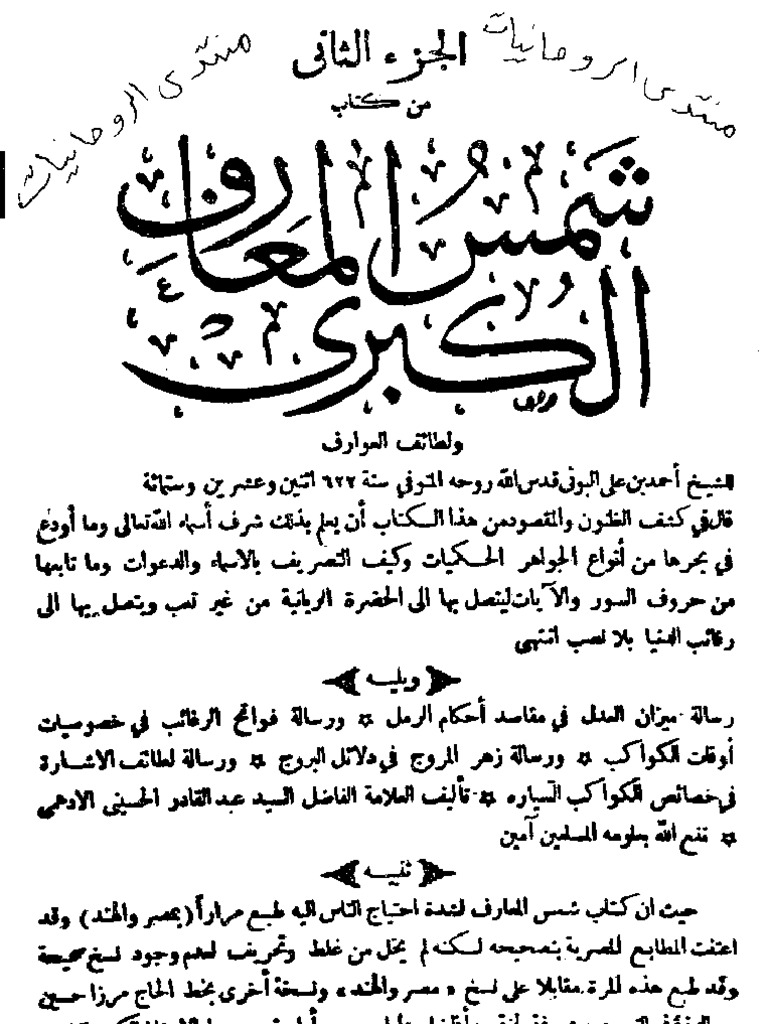 منتدى الروحانيات
منتدى الروحانيات
الجزء الثانى
من كتاب
شمس المعارف
الكبرى
ولطائف العوارف
للشيخ أحمد بن على البونى قدس الله روحه المتوفي سنة ٦٢٢ اثنين وعشرين وستمائة
قال في كشف الظنون والمقصود من هذا الكتاب أن يعلم بذلك شرف أسماء الله تعالى وما أودع
في بحرها من أنواع الجواهر الحكميات وكيف التصريف بالاسماء والدعوات وما تابعها
من حروف السور والآيات ليتصل بها الى الحضرة الربانية من غير تعب ويتصل بها الى
رغائب الدنيا بلا نصب انتهى
ويليه
رسالة ميزان العدل في مقاصد أحكام الرمل ۞ ورسالة فواتح الرغائب في خصوصيات
أوقات الكواكب ۞ ورسالة زهر المروج في دلائل البروج ۞ ورسالة لطائف الاشارة
في خصائص الكواكب السياره ۞ تأليف العلامة الفاضل السيد عبد القادر الحسينى الادهمى
۞ نفع الله بعلومه المسلمين آمين
تنبيه
حيث ان كتاب شمس المعارف لشدة احتياج الناس اليه طبع مراراً (بمصر والهند) وقد
اعتنت المطابع المصرية بتصحيحه لكنه لم يخل من غلط وتحريف لعدم وجود نسخ صحيحة
وقد طبع هذه المرة مقابلا على نسخ « مصر والهند » ونسخة أخرى بخط الحاج مرزا حسين